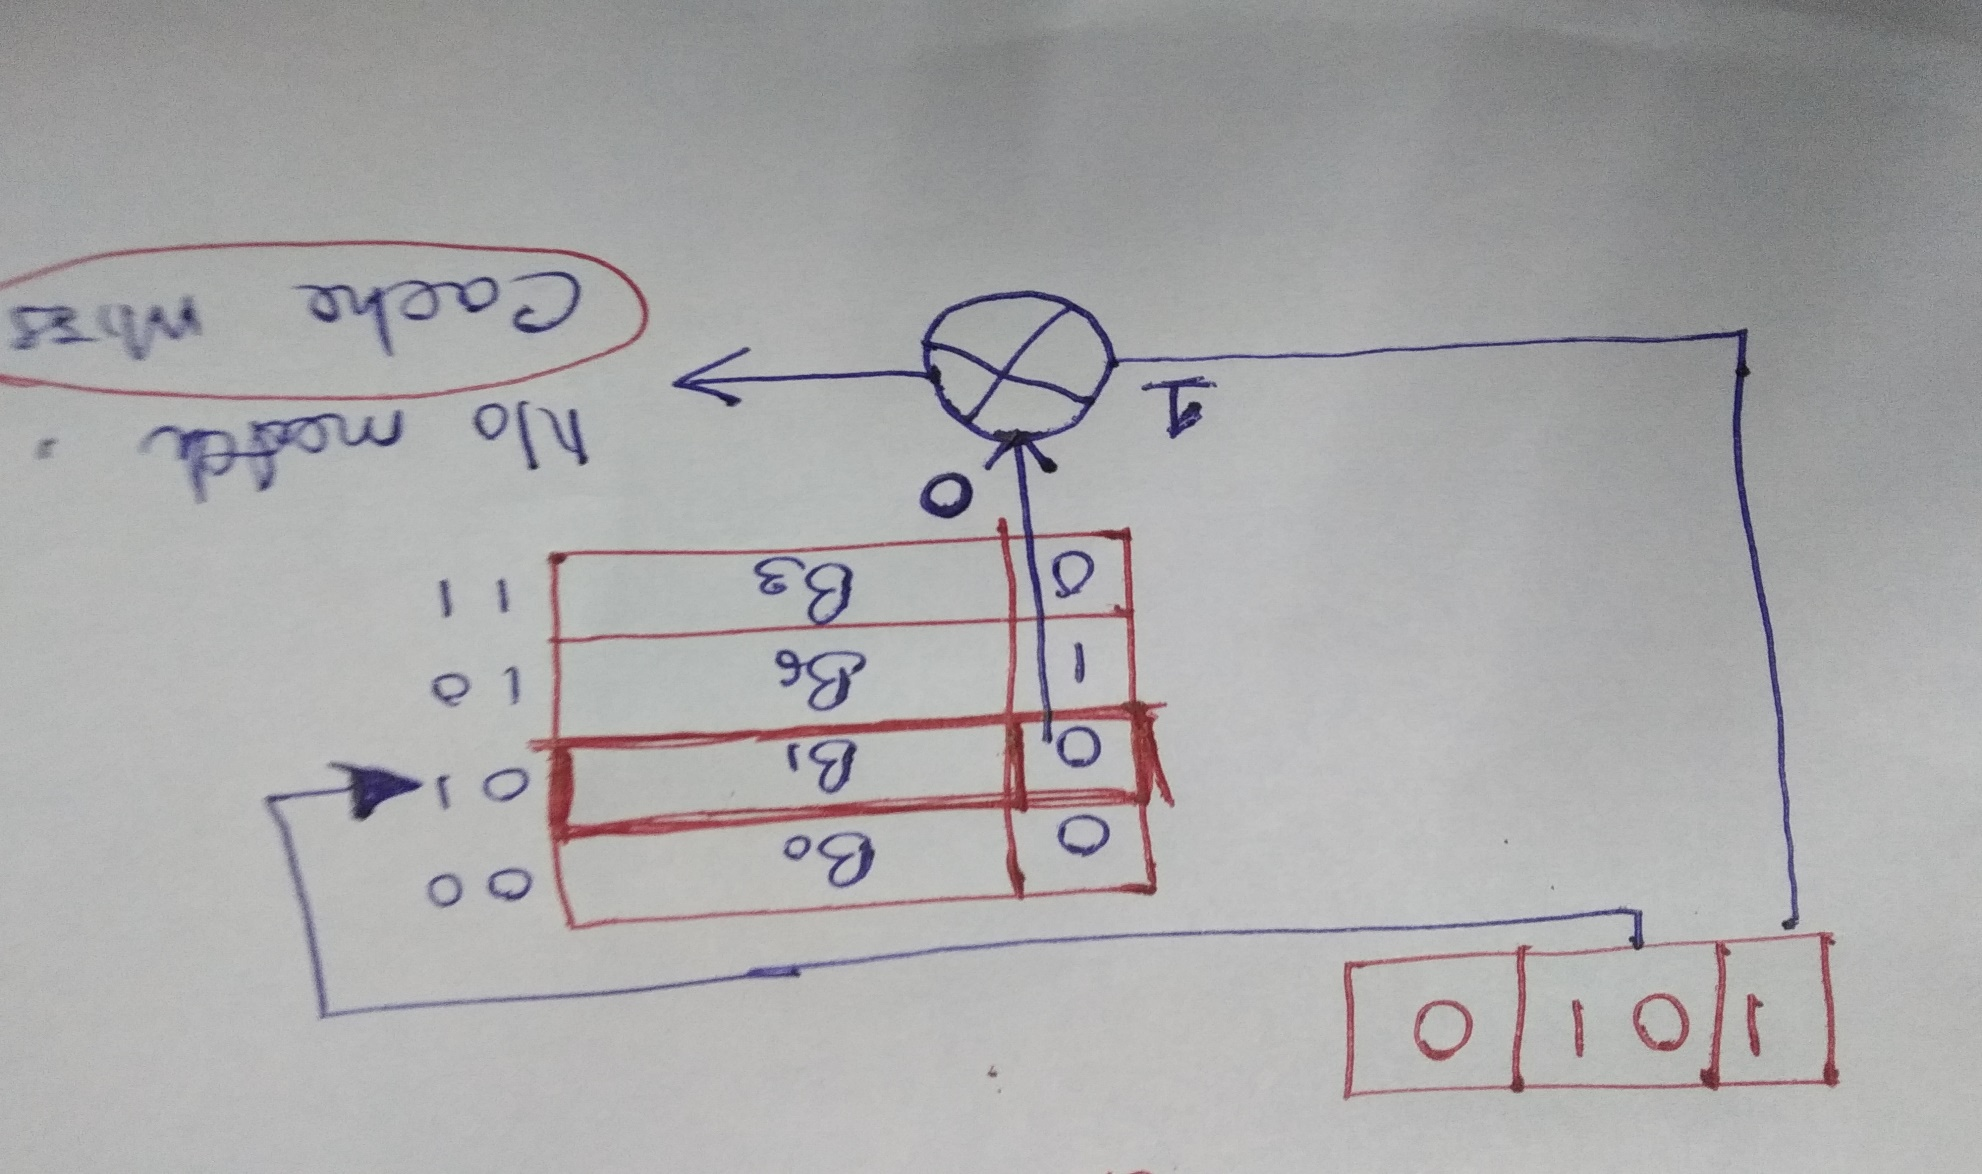 1 0 1 0
0 B0 0 0
0 B1 0 1
1 B6 1 0
0 B3 1 1
0
1
No match .
Cache Miss